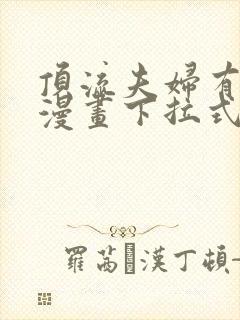 頂流夫婦有
漫畫下拉式
羅茜·漢丁頓-